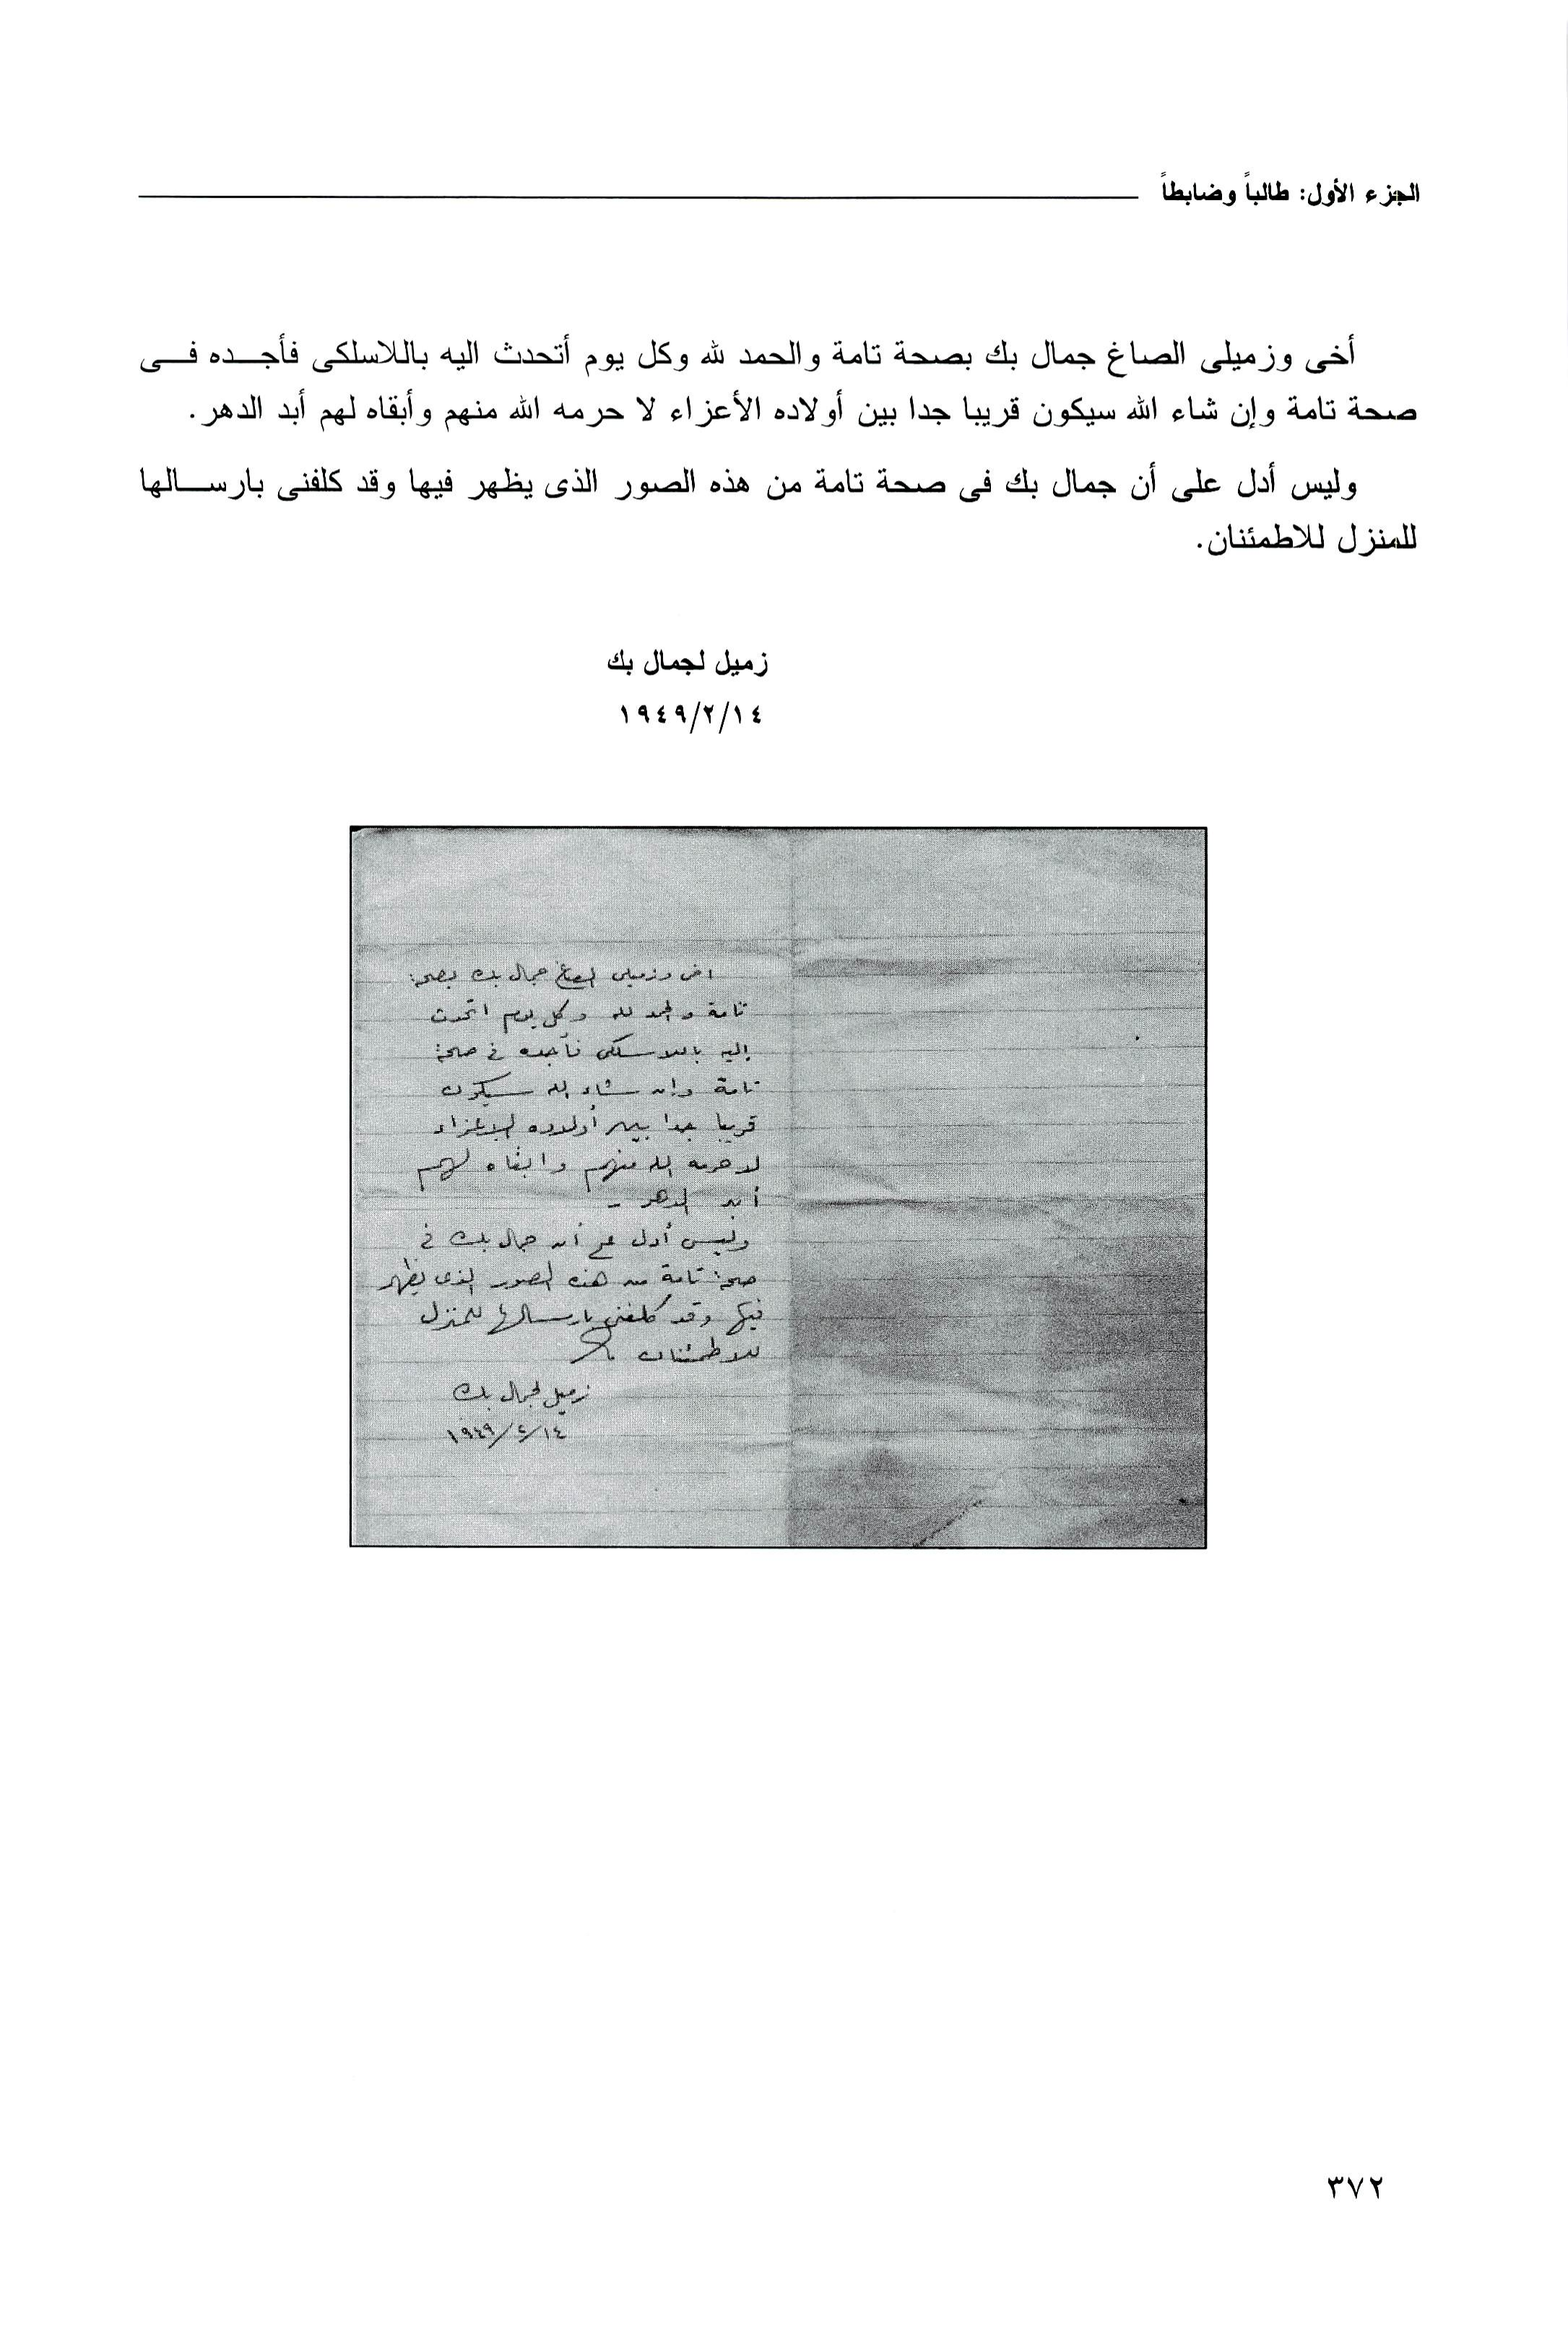 الجزء الأول: طالباً وضابطاً
أخى وزميلى الصاغ جمال بك بصحة تامة والحمد لله وكل يوم أتحدث اليه باللاسلكى فأجـــده فـــى
صحة تامة وإن شاء الله سيكون قريبا جدا بين أولاده الأعزاء لا حرمه الله منهم وأبقاه لهم أبد الدهر.
وليس أدل على أن جمال بك فى صحة تامة من هذه الصور الذى يظهر فيها وقد كلفنى بارســـالها
للمنزل للاطمئنان.
زميل لجمال بك
١٩٤٩/٢/١٤
اخى وزميلى الصاغ جمال بك بصحة
تامة والحمد لله وكل يوم اتحدث
إليه باللاسلكى فأجده فى صحة
تامة وان شاء الله سيكون
قريبا جدا بين أولاده الاعزاء
لا حرمه الله منهم وابقاه لهم
أبد الدهر -
وليس أدل على أن جمال بك فى
صحة تامة من هذه الصور الذى يظهر
فيها وقد كلفنى بارسالها للمنزل
للاطمئنان
زميل لجمال بك
١٩٤٩/٢/١٤
٣٧٢